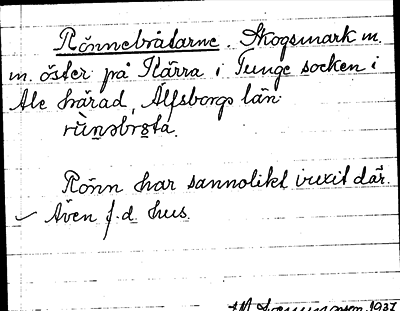 Rönnebråtarne. Skogsmark m.
m. öster på Tlärra i Tunge socken i
Ale härad, Älfsborgs län
Rönn har sannolikt vuxit där.
Även f.d. hus.
1937